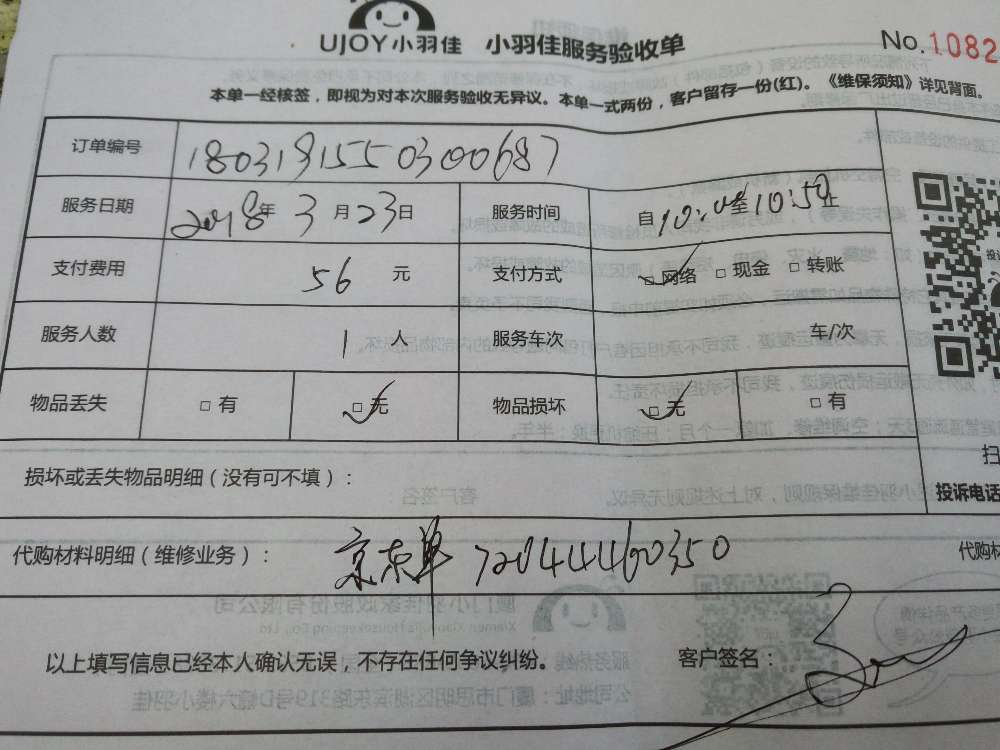 UJOY小羽佳 小羽佳服务验收单 No.1082
本单一经核签，即视为对本次服务验收无异议。本单一式两份，客户留存一份(红)。《维保须知》详见背面。
订单编号 1803191550300687
服务日期 2018年 3月23日 服务时间 自10:00至10:50止
支付费用 56 元 支付方式 □网络 □现金 □转账
服务人数 1 人 服务车次 车/次
物品丢失 □有 □无 物品损坏 □无 □有
损坏或丢失物品明细（没有可不填）：
投诉电话
代购材料明细（维修业务）： 京东单 72044460350 代购材
以上填写信息已经本人确认无误，不存在任何争议纠纷。 客户签名：